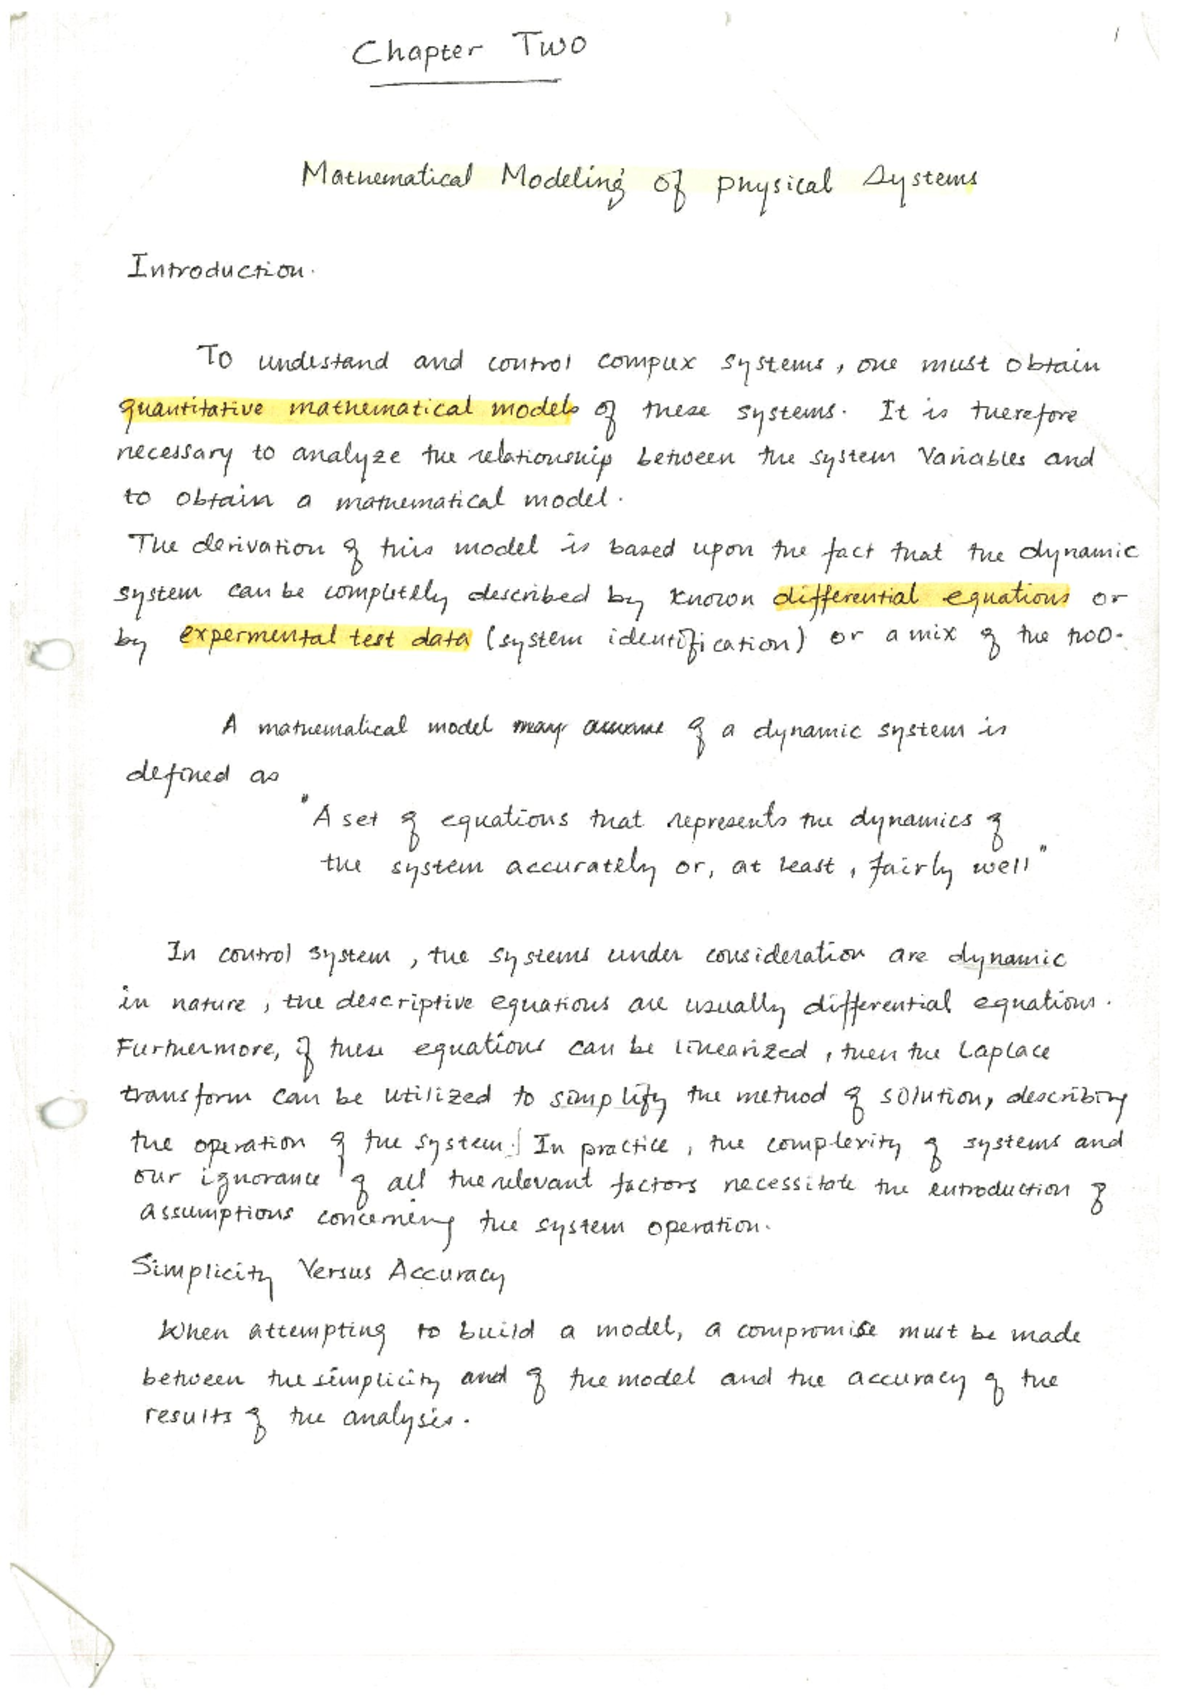 1
Chapter Two
Mathematical Modeling of physical Systems
Introduction.
To undestand and control complex systems, one must obtain
quantitative mathematical models of these systems. It is therefore
necessary to analyze the relationship between the system variables and
to obtain a mathematical model.
The derivation of this model is based upon the fact that the dynamic
system can be completely described by known differential equations or
by expermental test data (system identification) or a mix of the two.
A mathematical model may assume of a dynamic system is
defined as
"A set of equations that represents the dynamics of
the system accurately or, at least, fairly well"
In control system, the systems under consideration are dynamic
in nature, the descriptive equations are usually differential equations.
Furthermore, if these equations can be linearized, then the Laplace
transform can be utilized to simplify the method of solution, describing
the operation of the system. In practice, the complexity of systems and
our ignorance of all the relevant factors necessitate the introduction of
assumptions concerning the system operation.
Simplicity Versus Accuracy
When attempting to build a model, a compromise must be made
between the simplicity and of the model and the accuracy of the
results of the analysis.